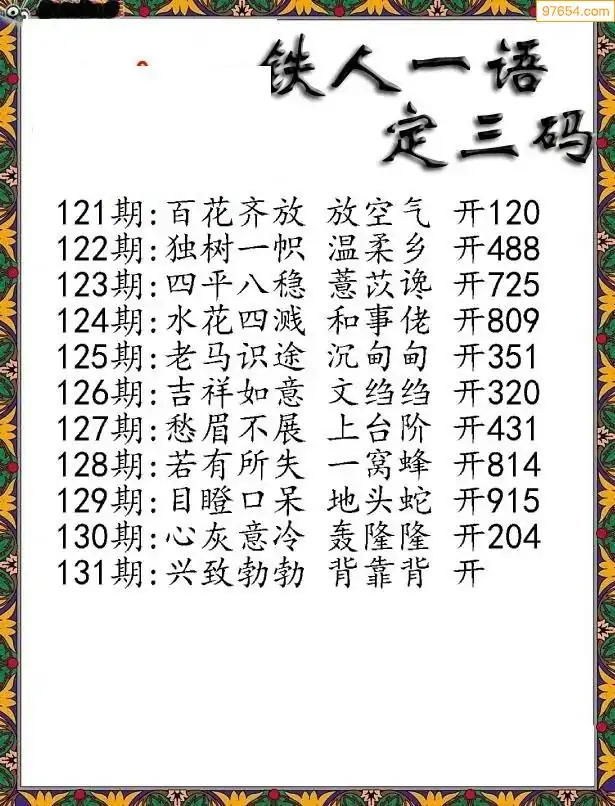 97654.com
铁人一语
定三码
121期:百花齐放 放空气 开120
122期:独树一帜 温柔乡 开488
123期:四平八稳 薏苡谗 开725
124期:水花四溅 和事佬 开809
125期:老马识途 沉甸甸 开351
126期:吉祥如意 文绉绉 开320
127期:愁眉不展 上台阶 开431
128期:若有所失 一窝蜂 开814
129期:目瞪口呆 地头蛇 开915
130期:心灰意冷 轰隆隆 开204
131期:兴致勃勃 背靠背 开